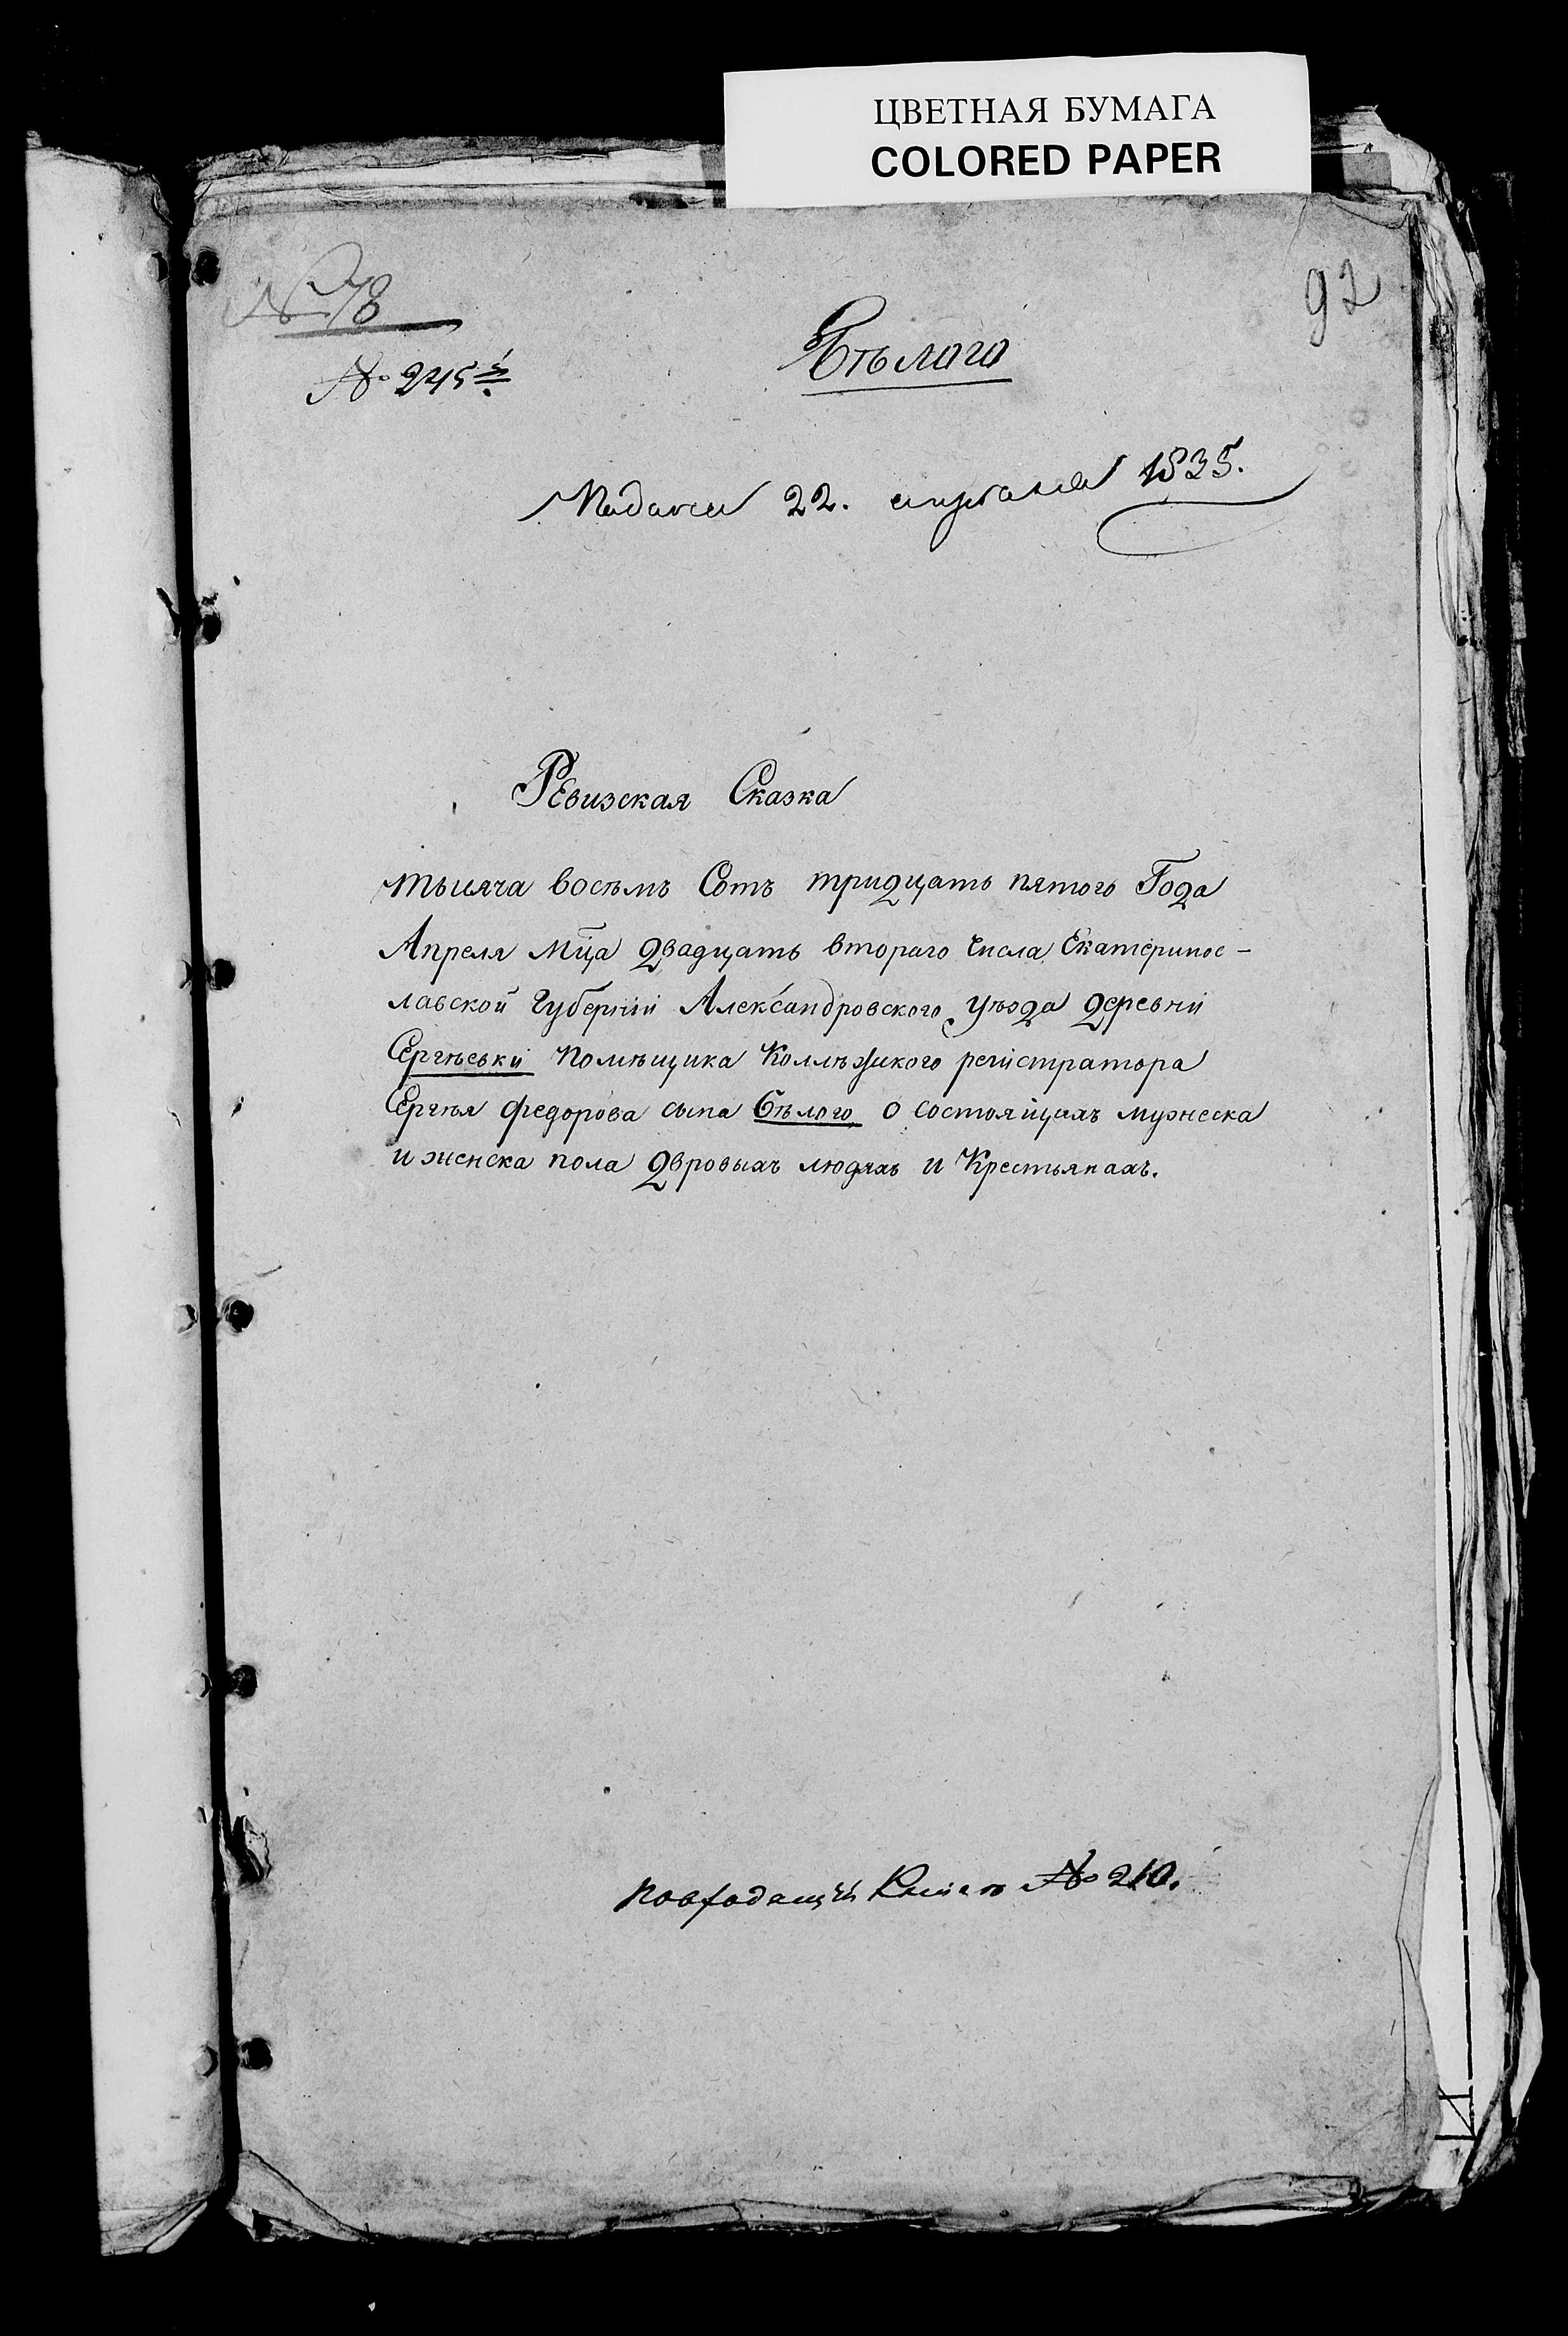 ЦВЕТНАЯ БУМАГА
COLORED PAPER
92
№ 78
№ 245й
Бѣлого
Подана 22. апреля 1835.
Ревизская Сказка
тысяча восѣмъ Сотъ тридцать пятого Года
Апреля мца двадцать втораго числа Екатеринос-
лавской Губерніи Александровского уѣзда деревни
Сергѣевки помѣщика Коллѣжского регистратора
Сергѣя Федорова сына Бѣлого о состоящихъ мужеска
и женска пола дворовыхъ людяхъ и Крестьянахъ.
по входящій Книгѣ № 210.